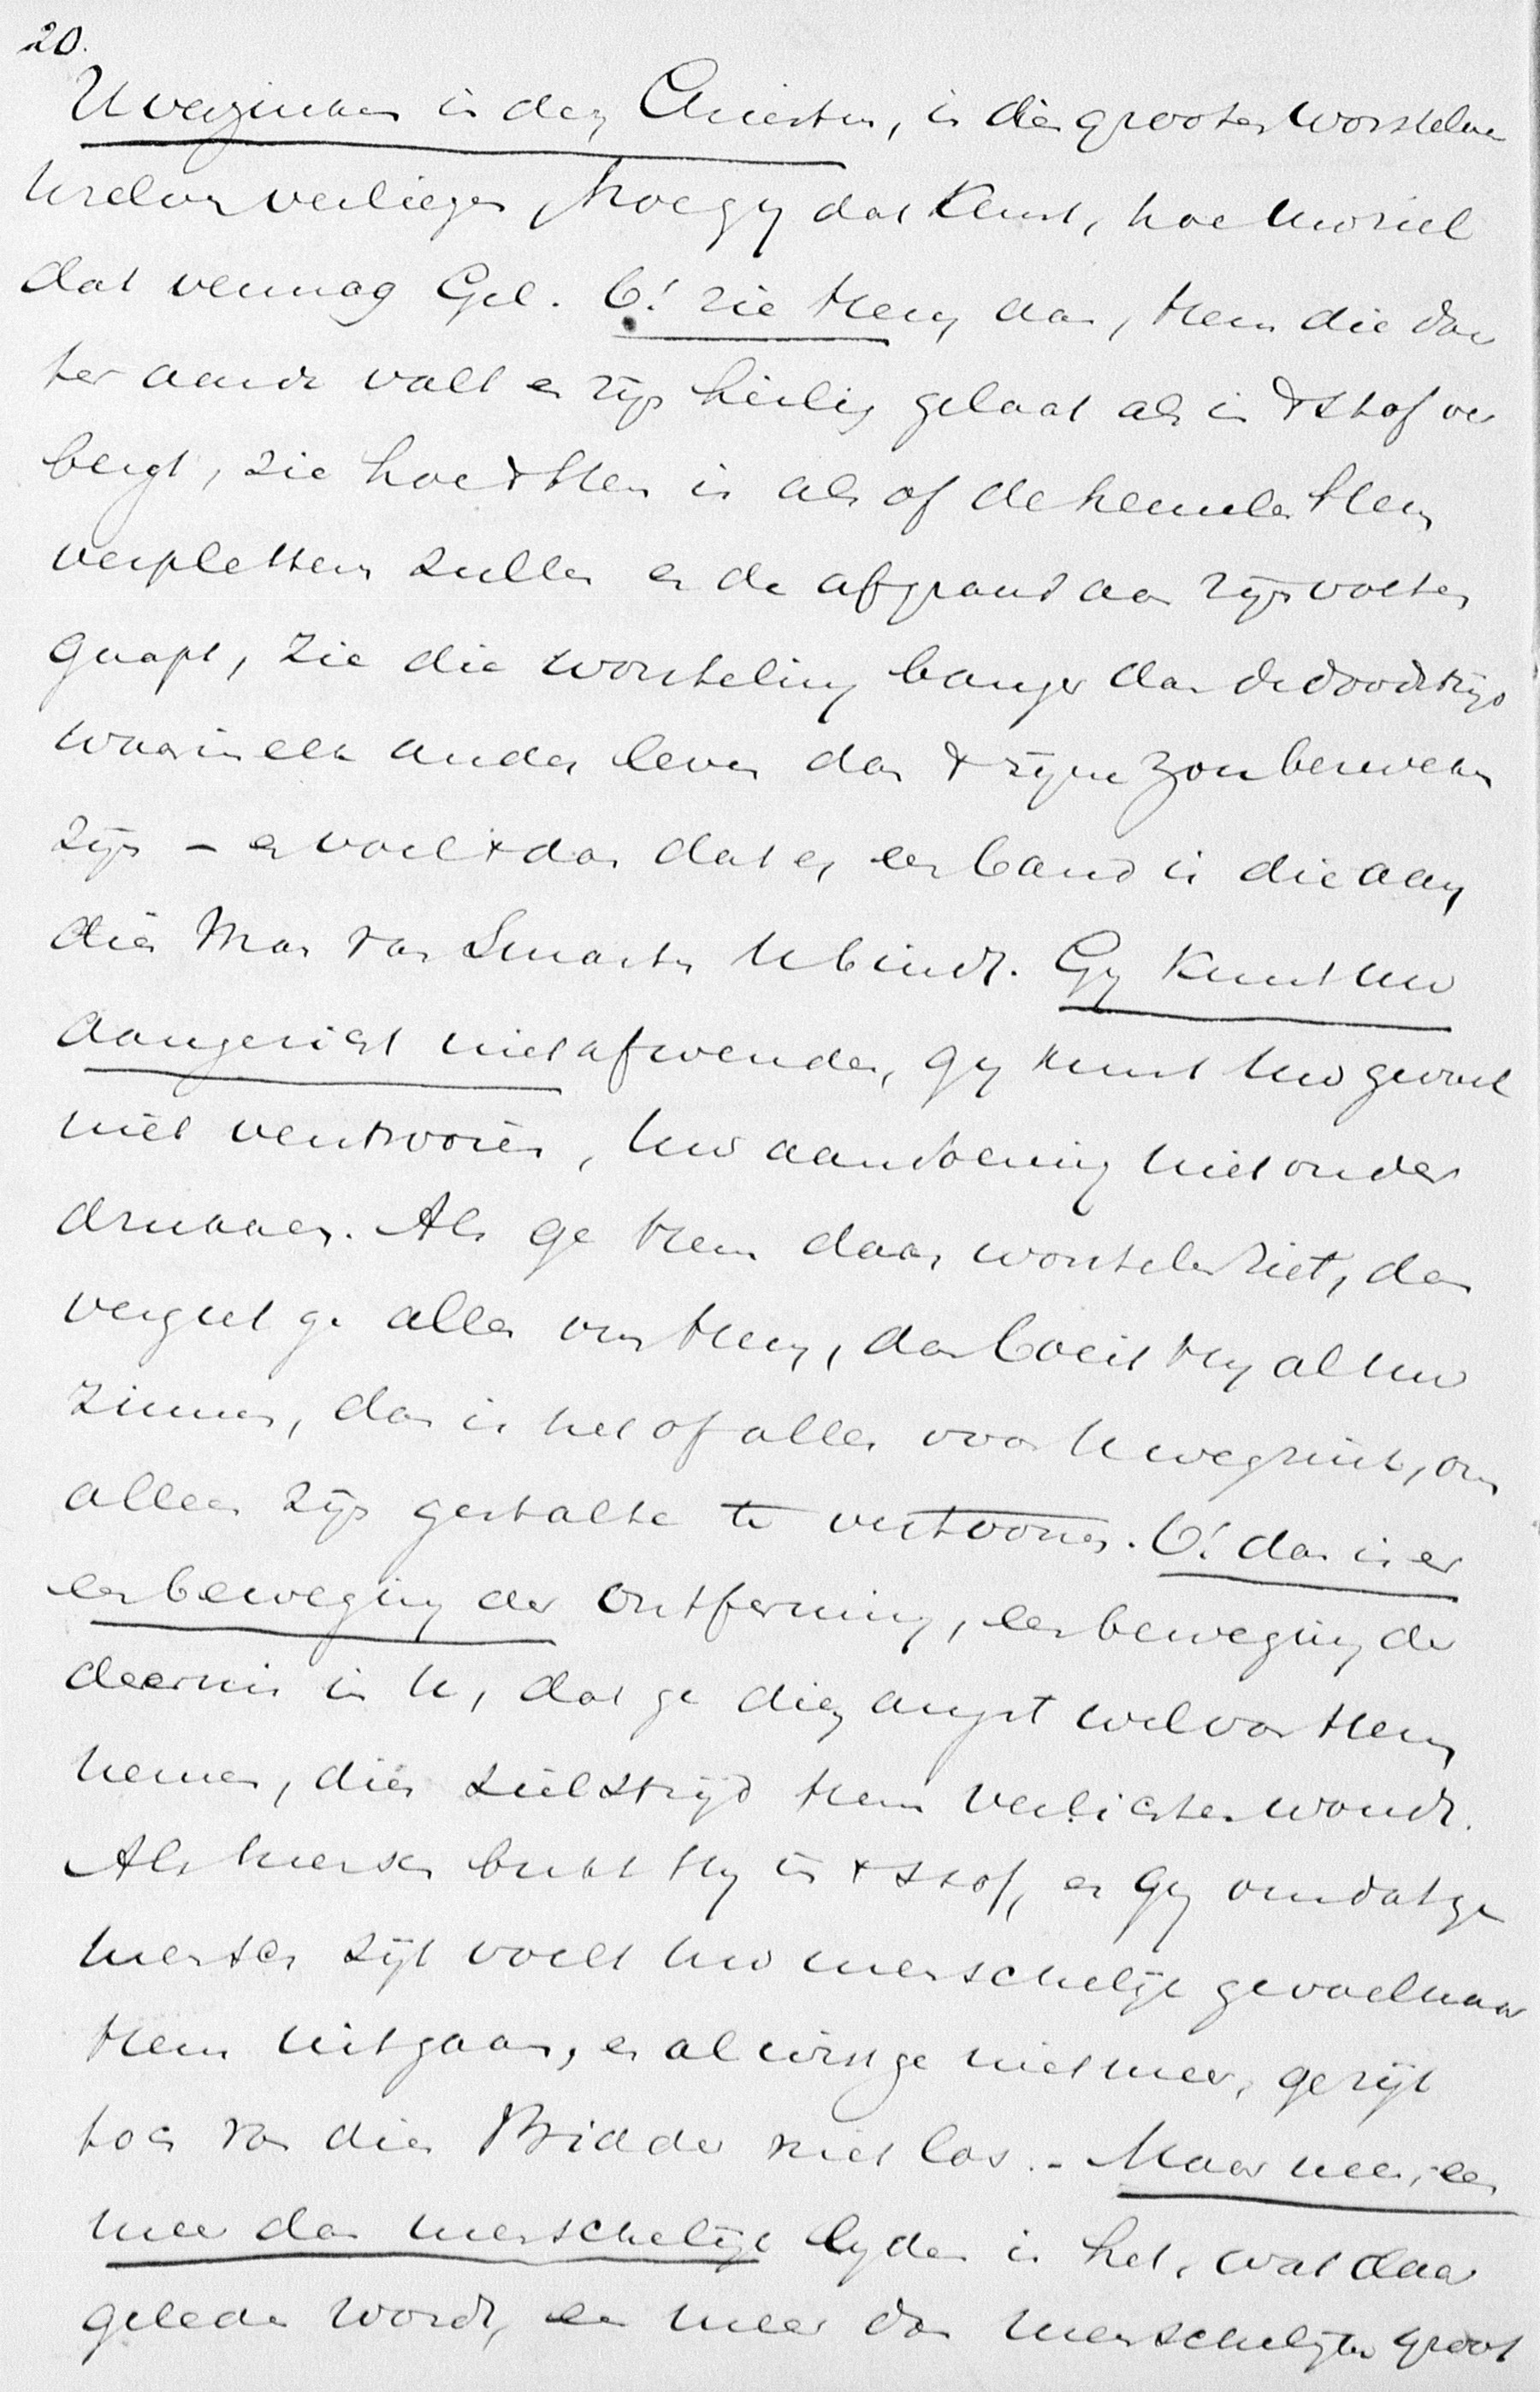 20.
U verzinken in den Christus, in dien grooten Worstelaar
Uzelven verliezen, hoe gij dat kunt, hoe Uw ziel
dat vermag Gel. O! zie Hem dan, Hem die daar
ter aarde valt en zijn heilig gelaat als in 't stof ver
bergt, zie hoe 't Hem is als of de hemelen Hem
verpletteren zullen en de afgrond aan zijn voeten
gaapt, zie die worsteling banger dan de doodstrijd
waarin een ander leven dan 't zijne zou bezweken
zijn – en voel 't dan dat er een band is die aan
dien Man van Smarten U bindt. Gij kunt Uw
aangezicht niet afwenden, gij kunt Uw gevoel
niet verstrooien, Uw aandoening niet onder
drukken. Als ge Hem daar worstelen ziet, dan
vergeet ge alles om Hem, dan boeit Hij al Uw
zinnen, dan is het of alles voor U wegzinkt, om
alleen zijn gestalte te vertoonen. O! dan is er
een beweging der ontferming, een beweging der
deernis in U, dat ge dien angst wel van Hem
nemen, dien zielstrijd Hem verlichten woudt.
Als mensch bukt Hij in 't stof, en gij omdat ge
mensch zijt voelt Uw menschelijk gevoel naar
Hem uitgaan, en al wist ge niet meer, ge zijt
toch van dien Bidder niet los. – Maar neen, een
meer dan menschelijk lijden is het, wat daar
geleden wordt, een meer dan menschelijken groot